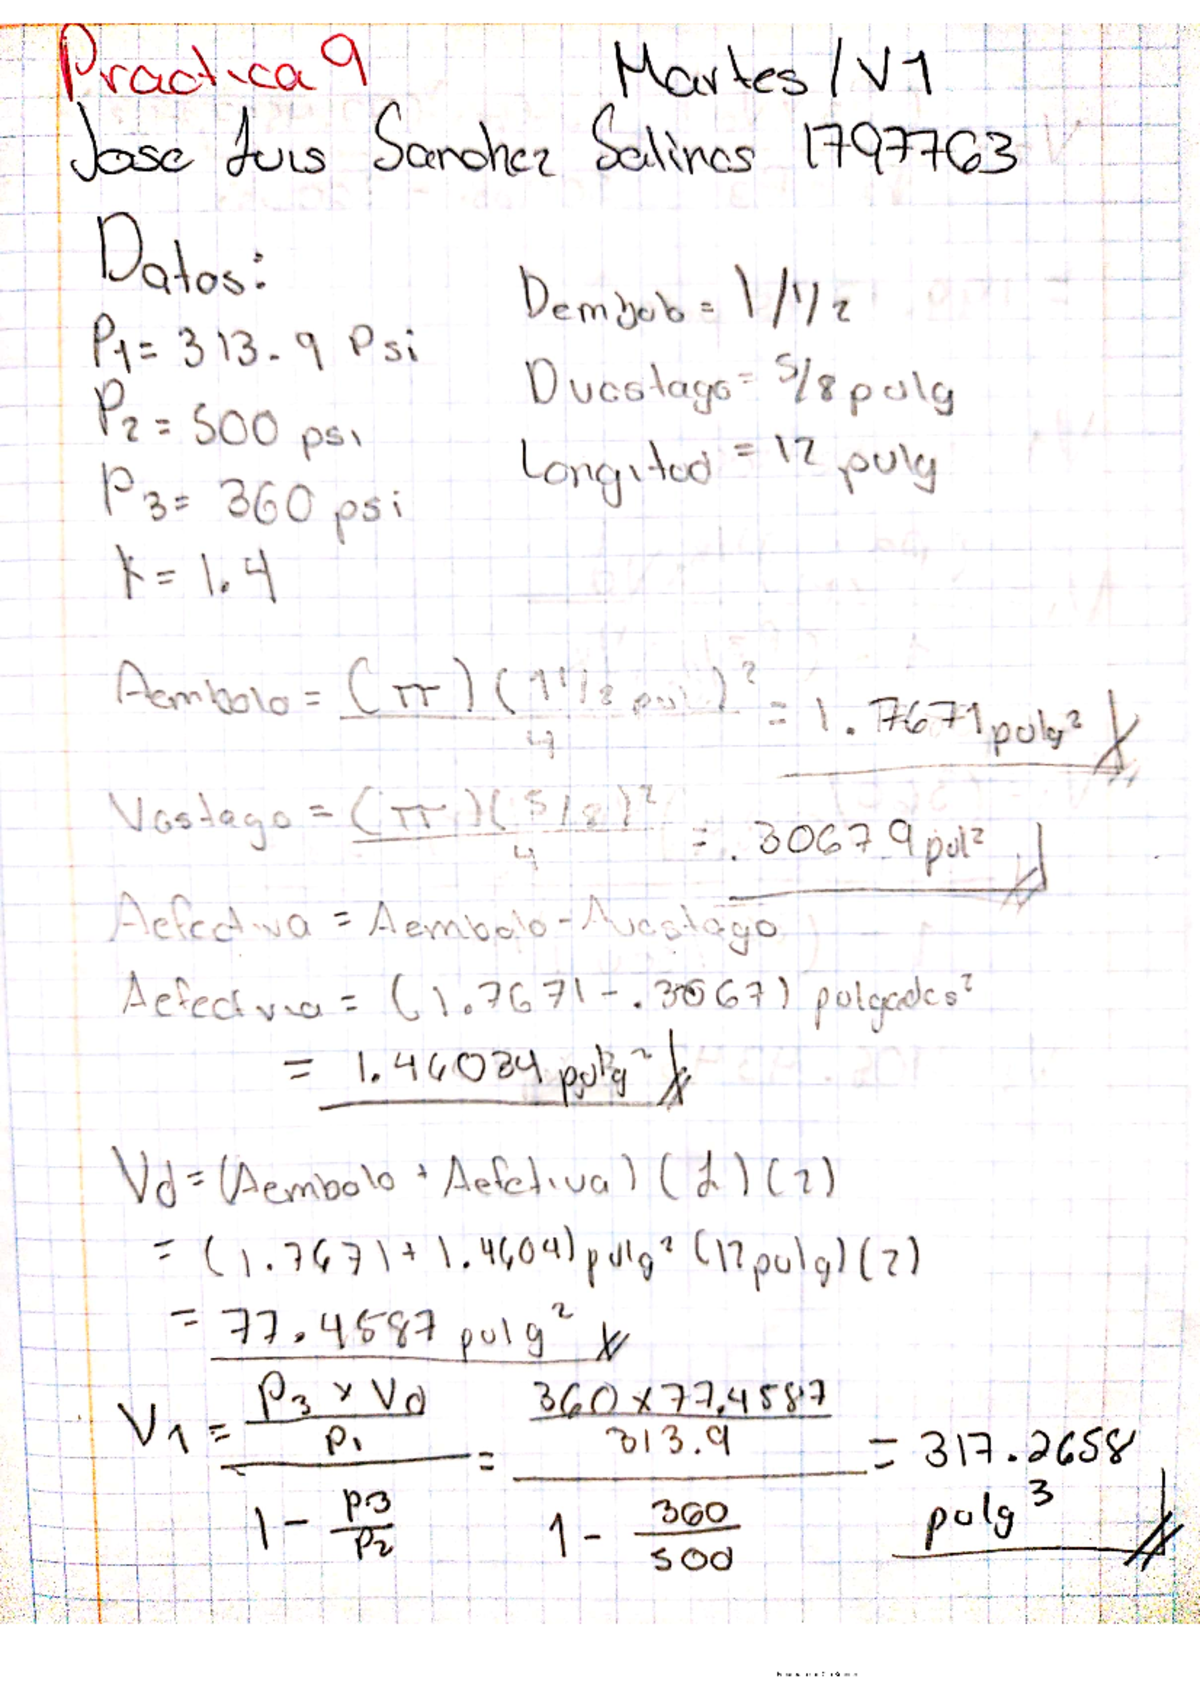 Practica 9 Martes / V1
Jose Luis Sanchez Salinas 1797763
Datos:
P1 = 313.9 Psi
P2 = 500 psi
P3 = 360 psi
K = 1.4
Dembob = 1 1/2
Dvastago = 5/8 pulg
Longitud = 12 pulg
Aembolo = (π)(1 1/2 pul)² / 4 = 1.7671 pulg²
Vastago = (π)(5/8)² / 4 = .30679 pul²
Aefectiva = Aembolo - Avastago
Aefectiva = (1.7671 - .3067) pulgadas²
= 1.46034 pulg²
Vd = (Aembolo + Aefectiva)(L)(2)
= (1.7671 + 1.4604) pulg² (12 pulg)(2)
= 77.4587 pulg²
V1 = (P3 x Vd / P1) / (1 - P3/P2) = (360 x 77.4587 / 313.9) / (1 - 360/500) = 317.2658 pulg³